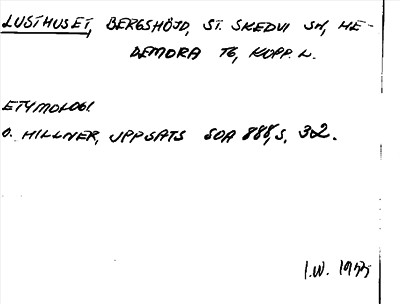 LUSTHUSET, BERGSHÖJD, ST. SKEDVI SN, HE-
DEMORA TG, KOPP. L.
ETYMOLOGI.
O. HILLNER, UPPSATS SOA 888, S. 302.
I.W. 1955